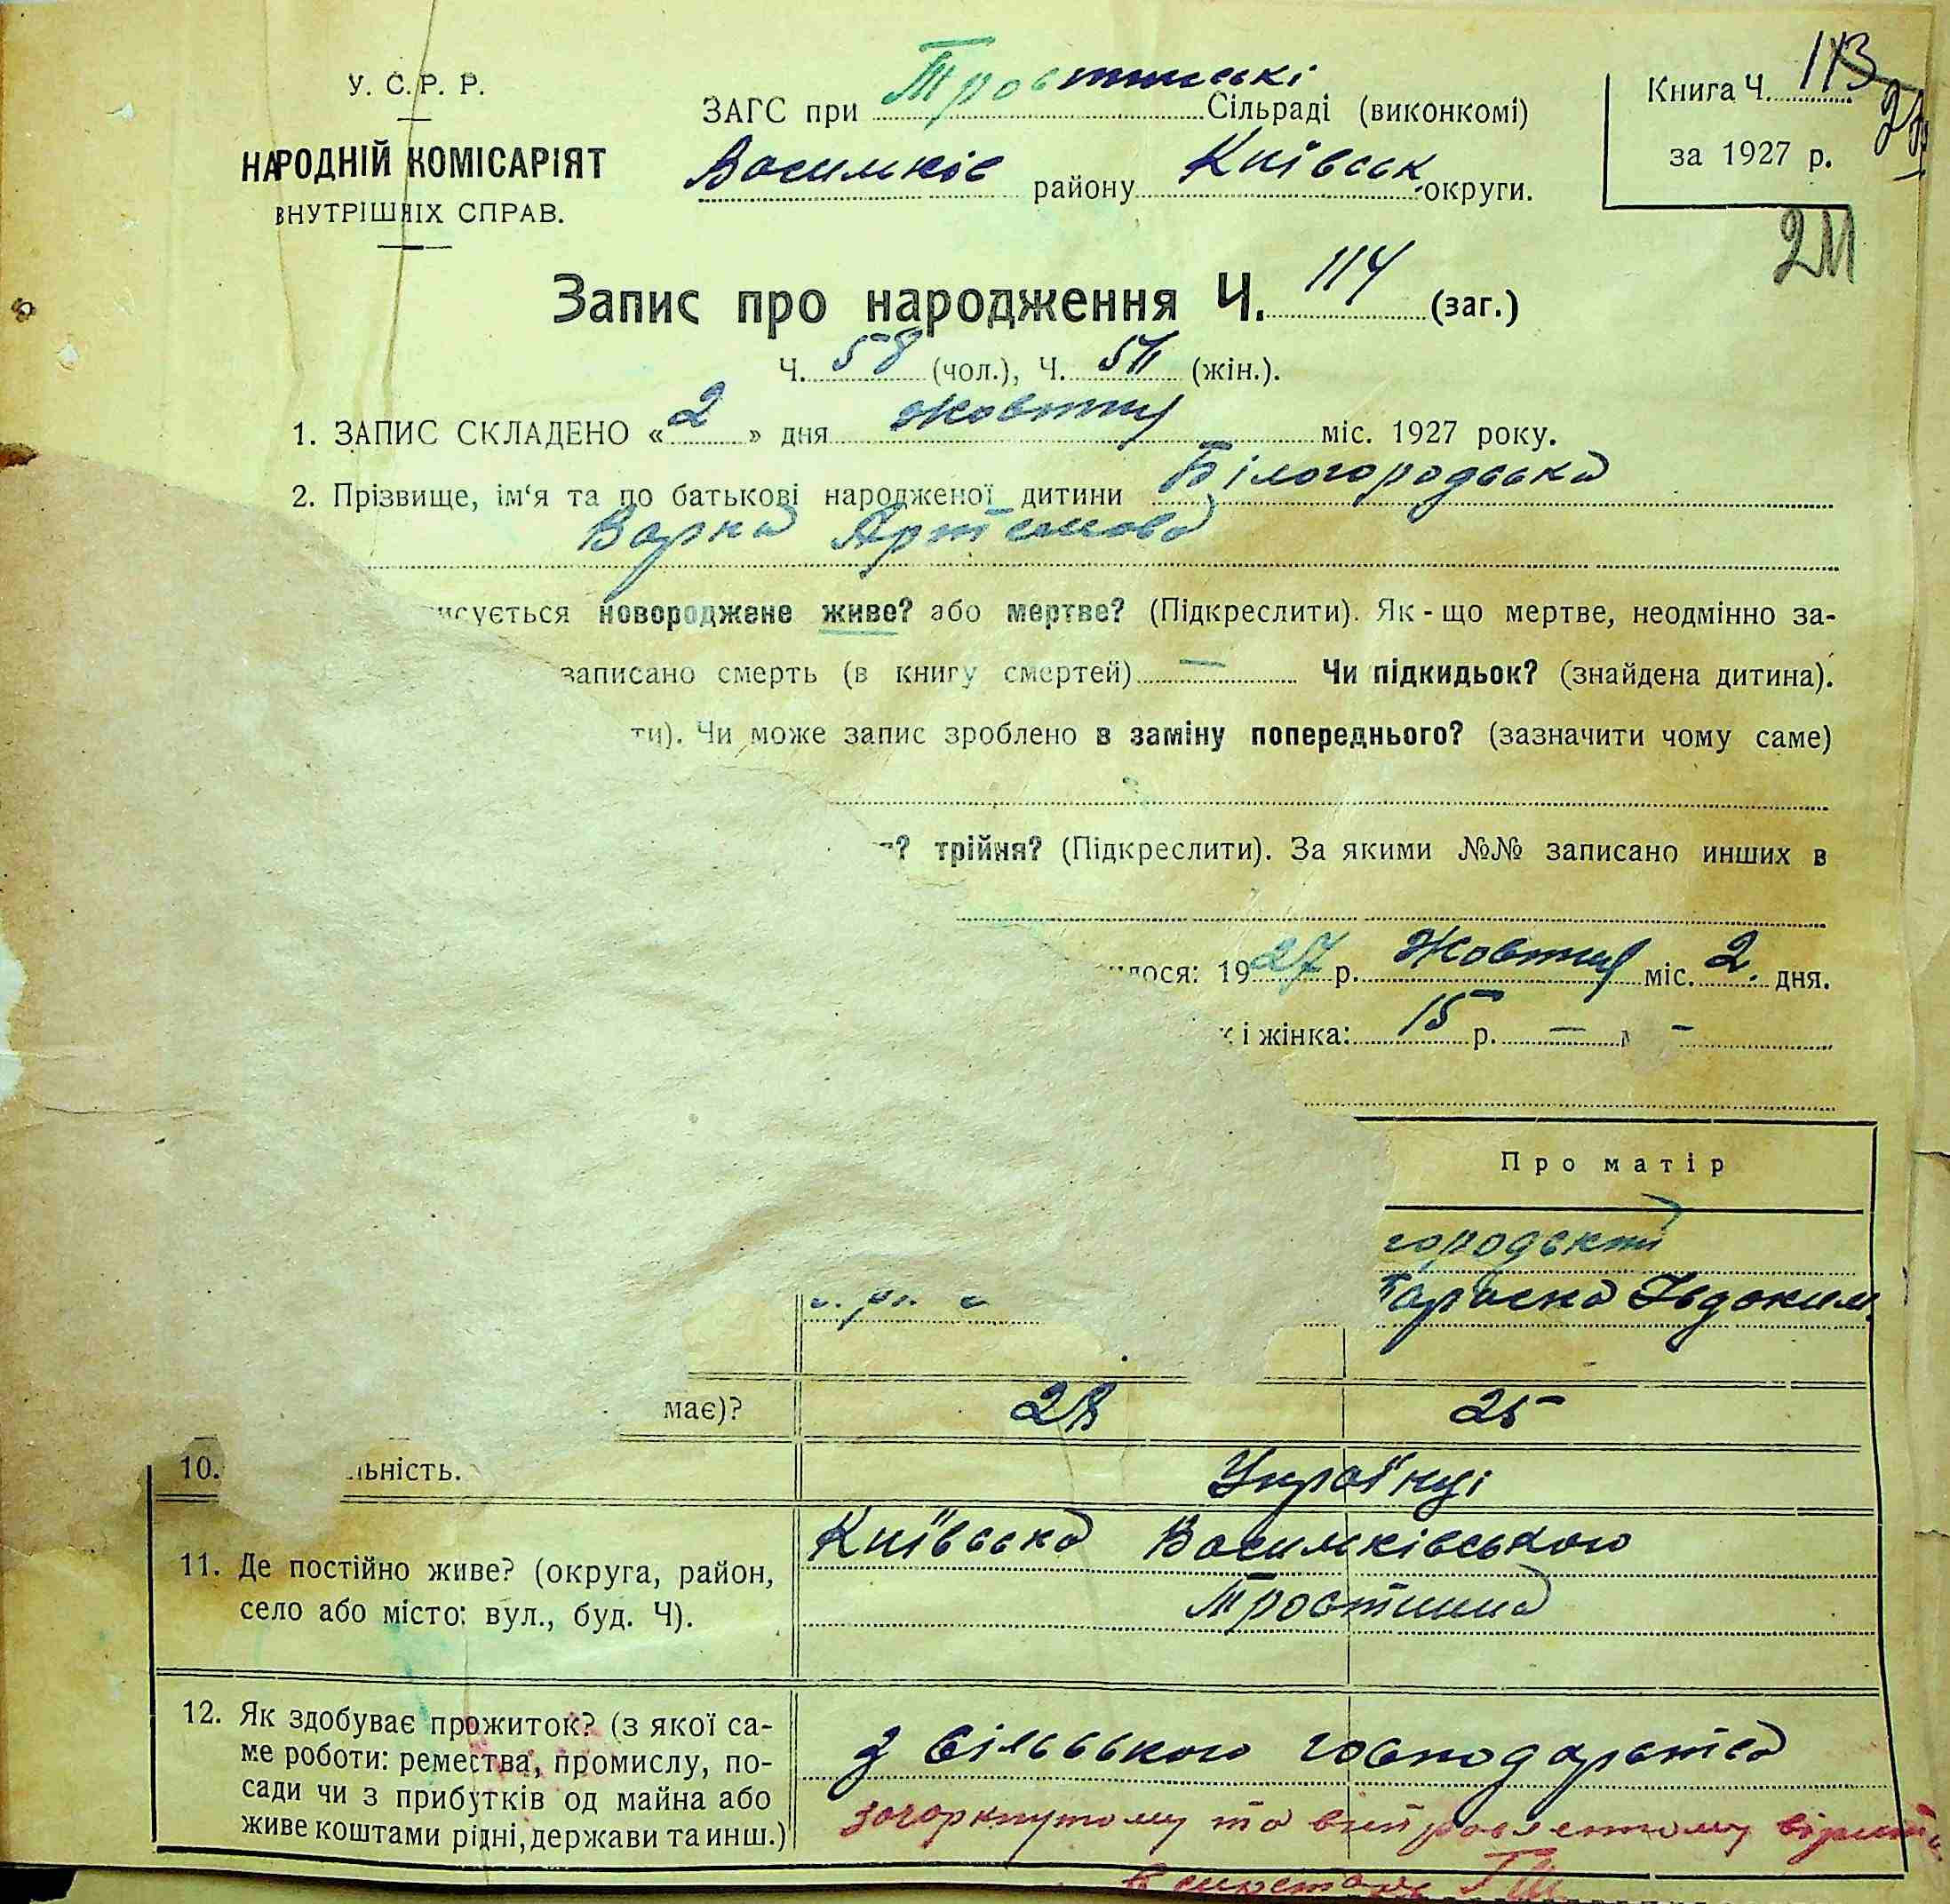 У. С. Р. Р.
НАРОДНІЙ КОМІСАРІЯТ
ВНУТРІШНІХ СПРАВ.
ЗАГС при Сільраді (виконкомі)
Василків району Київськ округи.
Книга Ч. 113
за 1927 р.
211
Запис про народження Ч. 114 (заг.)
Ч. 58 (чол.), Ч. (жін.).
1. ЗАПИС СКЛАДЕНО «2» дня жовтня міс. 1927 року.
2. Прізвище, ім‘я та по батькові народженої дитини Білогородська
Варка Артемова
исується новороджене живе? або мертве? (Підкреслити). Як-що мертве, неодмінно за-
записано смерть (в книгу смертей) — Чи підкидьок? (знайдена дитина).
ти). Чи може запис зроблено в заміну попереднього? (зазначити чому саме)
трійня? (Підкреслити). За якими №№ записано инших в
лося: 1927 р. Жовтня міс. 2. дня.
і жінка: 15 р. — м —
Про матір
городскі
Параска Івдоким
має)? 28 25
10. льність. Українці
11. Де постійно живе? (округа, район,
село або місто: вул., буд. Ч).
Київська Василківського
Тростинка
12. Як здобуває прожиток? (з якої са-
ме роботи: ремества, промислу, по-
сади чи з прибутків од майна або
живе коштами рідні, держави та инш.)
з сільського господарства
та